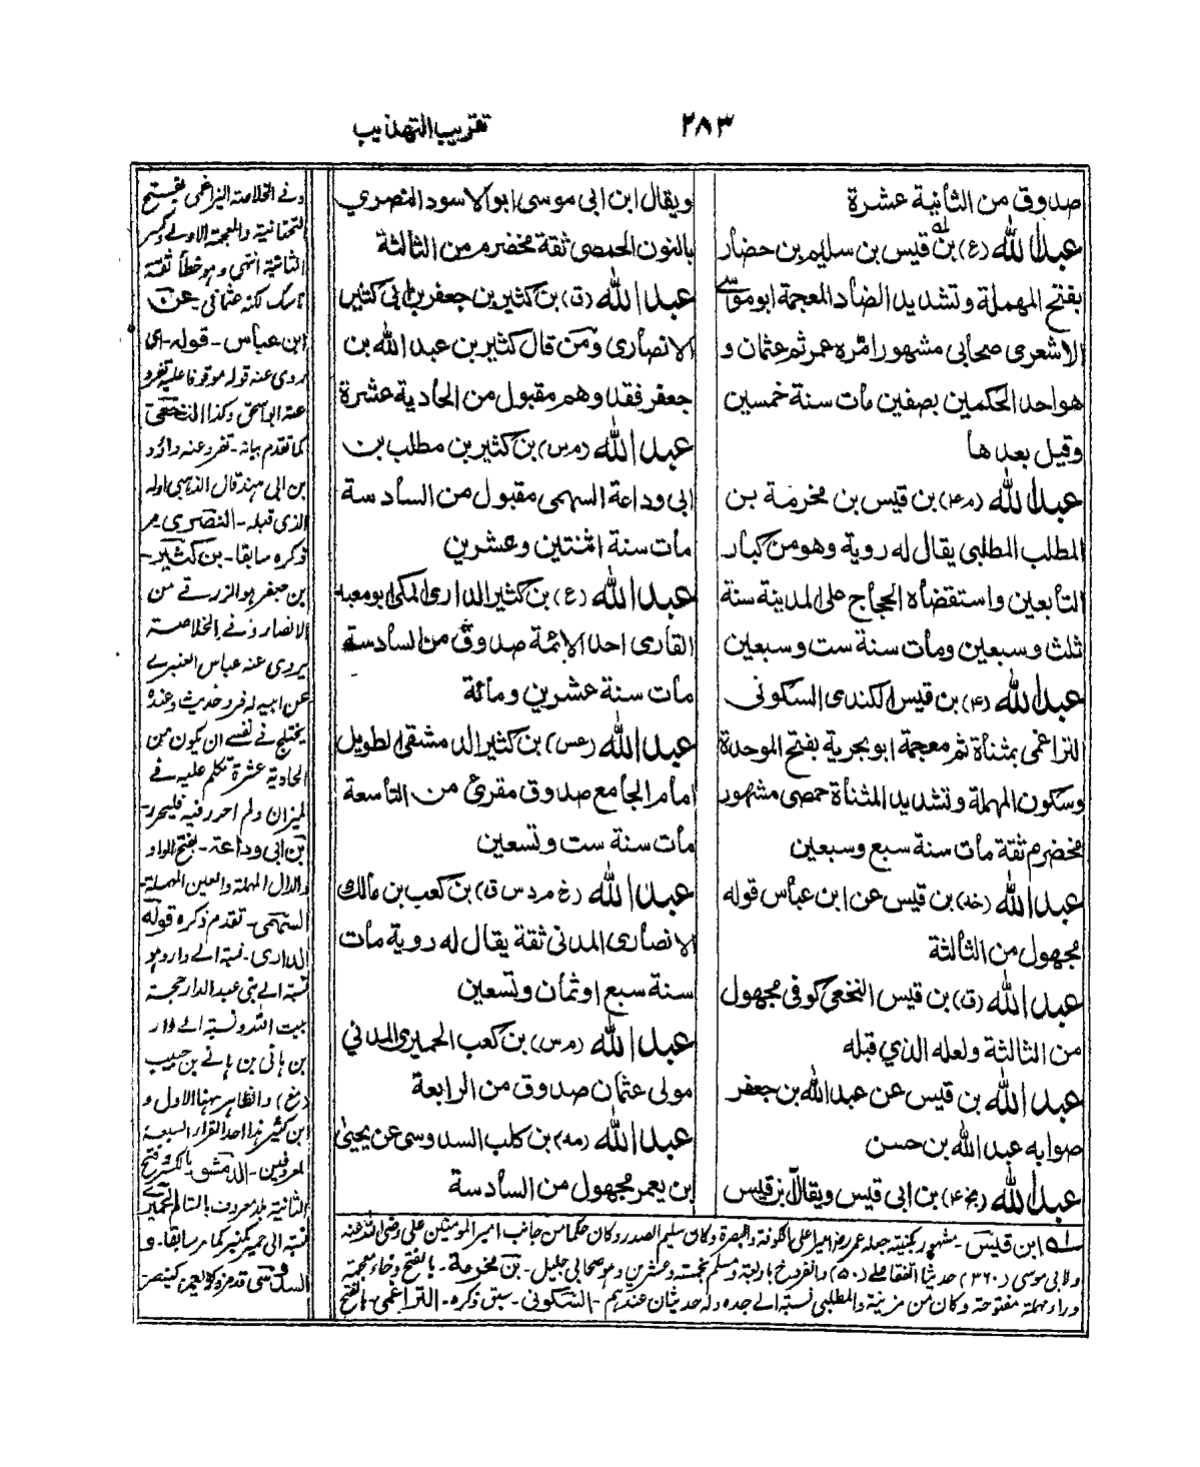 ٢٨٣
تقريب التهذيب
صدوق من الثانية عشرة
عبد الله (ع) بن قيس بن سليم بن حضار
بفتح المهملة وتشديد الضاد المعجمة ابو موسى
الاشعرى صحابى مشهور امّره عمر ثم عثمان و
هو احد الحكمين بصفين مات سنة خمسين
وقيل بعدها
عبد الله (م۴) بن قيس بن مخرمة بن
المطلب المطلبى يقال له روية وهو من كبار
التابعين واستقضاه الحجاج على المدينة سنة
ثلث وسبعين ومات سنة ست وسبعين
عبد الله (۴) بن قيس الكندى السكونى
التراغمى بمثناة ثم معجمة ابو بحرية بفتح الموحدة
وسكون المهملة وتشديد المثناة حمصى مشهور
مخضرم ثقة مات سنة سبع وسبعين
عبد الله (خد) بن قيس عن ابن عباس قوله
مجهول من الثالثة
عبد الله (ق) بن قيس النخعى كوفى مجهول
من الثالثة ولعله الذي قبله
عبد الله بن قيس عن عبد الله بن جعفر
صوابه عبد الله بن حسن
عبد الله (بخ۴) بن ابى قيس ويقال بن قيس
ويقال ابن ابى موسى ابو الاسود النصري
بالنون الحمصى ثقة مخضرم من الثالثة
عبد الله (ق) بن كثير بن جعفر بن ابى كثير
الانصارى ومن قال كثير بن عبد الله بن
جعفر فقد وهم مقبول من الحادية عشرة
عبد الله (م س) بن كثير بن مطلب بن
ابى وداعة السهمى مقبول من السادسة
مات سنة اثنتين وعشرين
عبد الله (ع) بن كثير الدارى المكى ابو معبد
القارى احد الائمة صدوق من السادسة
مات سنة عشرين ومائة
عبد الله (عس) بن كثير الدمشقى الطويل
امام الجامع صدوق مقرئ من التاسعة
مات سنة ست وتسعين
عبد الله (خ م د س ق) بن كعب بن مالك
الانصارى المدنى ثقة يقال له روية مات
سنة سبع او ثمان وتسعين
عبد الله (م س) بن كعب الحميرى المدني
مولى عثمان صدوق من الرابعة
عبد الله (مد) بن كلب السدوسى عن يحيىٰ
بن يعمر مجهول من السادسة
وفى الخلاصة اليزاغمى بفتح
التحتانية والمعجمة الاولى وكسر
الثانية انتهى وهو خطأ ثقة
ناسك لكنه عثمانى عن
ابن عباس - قوله - اى
يروى عنه قوله موقوفا عليه تفرد
عنه ابو اسحق وكذا النخعى
كما تقدم بيانه - تفرد عنه داؤد
بن ابى هند قال الذهبى لوله
الذى قبله - النصرى مر
ذكره سابقا - بن كثير -
بن جعفر هو الزرقى من
الانصار وفى الخلاصة
يروى عنه عباس العنبرى
عن ابيه له فرد حديث وعنده
يختلج فى نفسى ان يكون من
الحادية عشرة تكلم عليه فى
الميزان ولم احد رفيه فليحرر
بن ابى وداعة - بفتح الواو
والدال المهملة والعين المهملة -
السهمى - تقدم ذكره قوله
الدارى - نسبة الى دار وهو
نسبة الى بنى عبد الدار حجبة
بيت الله ونسبة الى دار
بن هانى بن هانى بن حبيب
(مغ) والظاهر ههنا الاول و
ابن كثير هذا احد القراء السبعة
المعروفين - الدمشقى بالكسر وفتح
الثانية بلد معروف بالشام الحميرى
نسبة الى حمير كمنبر كما مر سابقا - و
السدوسى قد مر ذكره يعمر كينصر
له ابن قيس - مشهور بكنيته جعله عمر رضـ اميرا على الكوفة والبصرة وكان سليم الصدر وكان حكما من جانب امير المومنين على رضى الله عنه
ولابى موسى (٣٦٠) حديثا اتفقا على (٥٠) وانفرد خ باربعة ومسلم بخمسة وعشرين وهو صحابى جليل - بن مخرمة - بالفتح وخاء معجمة
وراء مهملة مفتوحة وكان من مزينة والمطلبى نسبة الى جده وله حديثان عندهم - السكونى - سبق ذكره - التراغمى - بالفتح